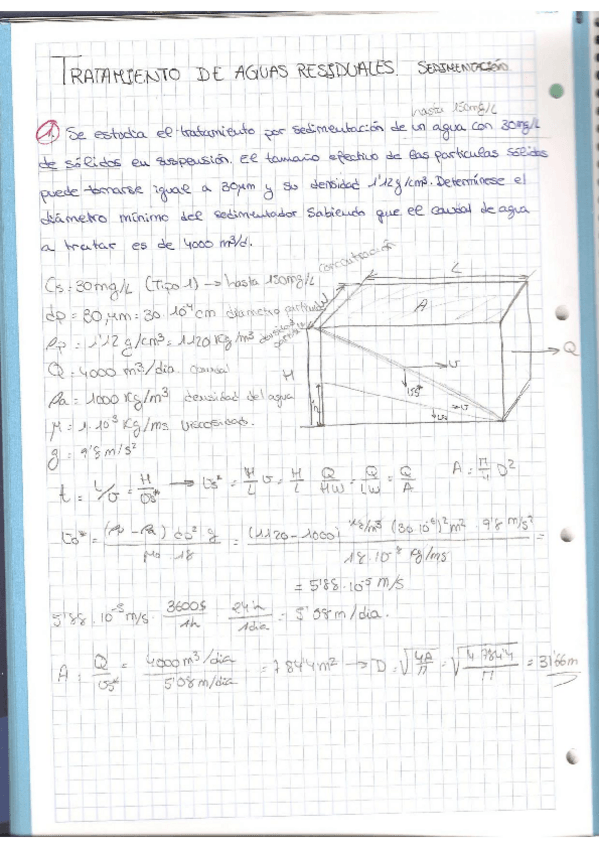 TRATAMIENTO DE AGUAS RESIDUALES. SEDIMENTACIÓN.
hasta 150mg/L
1. Se estudia el tratamiento por sedimentación de un agua con 30mg/L
de sólidos en suspensión. El tamaño efectivo de las partículas sólidas
puede tomarse igual a 30μm y su densidad 1'12g/cm³. Determínese el
diámetro mínimo del sedimentador sabiendo que el caudal de agua
a tratar es de 4000 m³/d.
Cs = 30mg/L (Tipo 1) → hasta 150mg/L concentración
dp = 30μm = 30·10⁻⁴cm diametro partícula
ρp = 1'12 g/cm³ = 1120 Kg/m³ densidad partícula
Q = 4000 m³/dia caudal
ρa = 1000 Kg/m³ densidad del agua
μ = 1·10⁻³ Kg/ms viscosidad.
g = 9'8 m/s²
L
A
Q
H
v
vs*
h
v
t = L/v = H/vs* → vs* = H/L v = H/L Q/HW = Q/LW = Q/A A = π/4 D²
vs* = (ρp - ρa) dp² g / μ 18 = (1120-1000) Kg/m³ (30·10⁻⁶)² m² · 9'8 m/s² / 18·10⁻³ Kg/ms =
= 5'88·10⁻⁵ m/s
5'88·10⁻⁵ m/s · 3600s/1h · 24h/1dia = 5'08m/dia.
A = Q/vs* = 4000m³/dia / 5'08m/dia = 784'4m² → D = √4A/π = √4·784'4/π = 31'66m